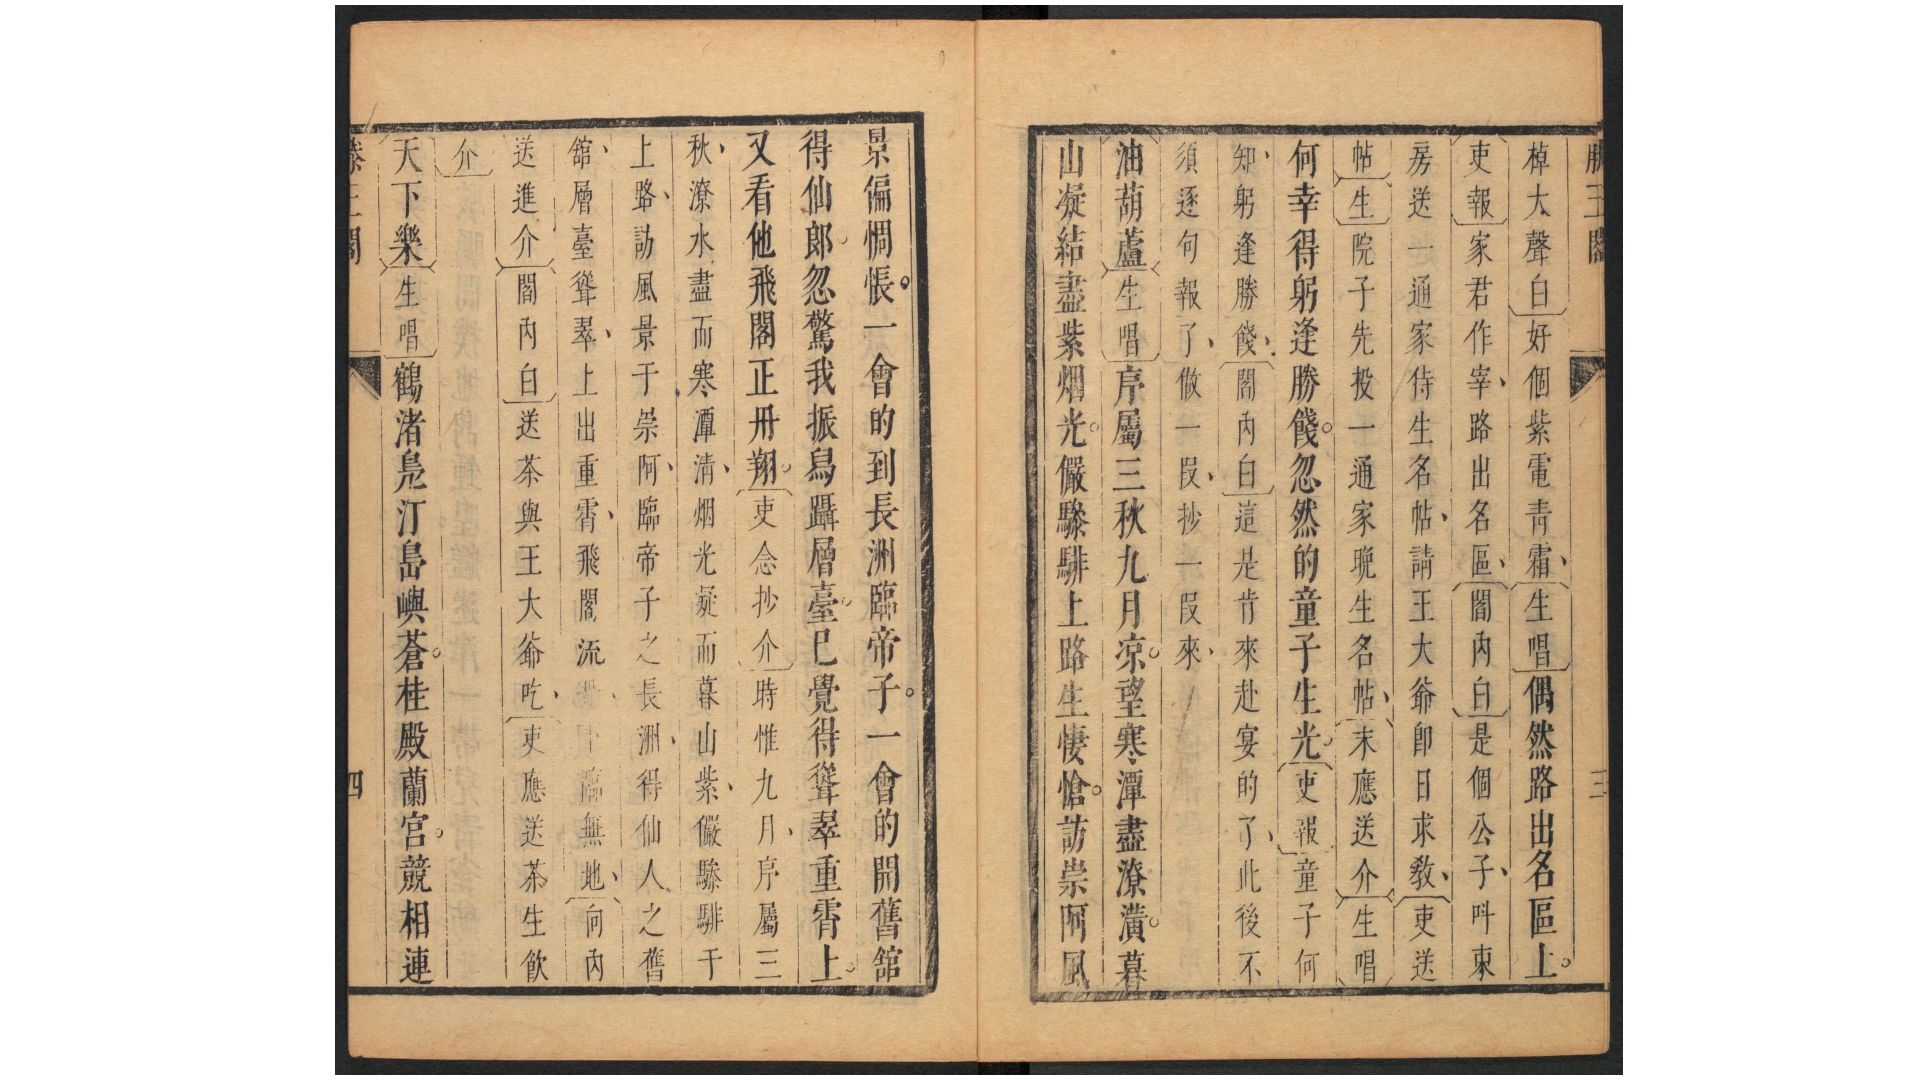 滕王閣
三
棹大聲白好個紫電靑霜生唱偶然路出名區上
吏報家君作宰路出名區閻內白是個公子呌束
房送一通家侍生名帖請王大爺卽日求教吏送
帖生院子先投一通家晚生名帖末應送介生唱
何幸得躬逢勝餞忽然的童子生光吏報童子何
知躬逢勝餞閻內白這是肯來赴宴的了此後不
須逐句報了做一段抄一段來
油葫蘆生唱序屬三秋九月凉望寒潭盡潦潢暮
山凝結盡紫烟光儼驂騑上路生悽愴訪崇阿風
景偏惆悵一會的到長洲臨帝子一會的開舊舘
得仙郎忽驚我振舄躡層臺已覺得聳翠重霄上
又看他飛閣正冊翔吏念抄介時惟九月序屬三
秋潦水盡而寒潭淸烟光凝而暮山紫儼驂騑于
上路訪風景于崇阿臨帝子之長洲得仙人之舊
舘層臺聳翠上出重霄飛閣流臨無地向內
送進介閻內白送茶與王大爺吃吏應送茶生飮
介
天下樂生唱鶴渚鳧汀島嶼蒼桂殿蘭宮競相連
滕王閣
四